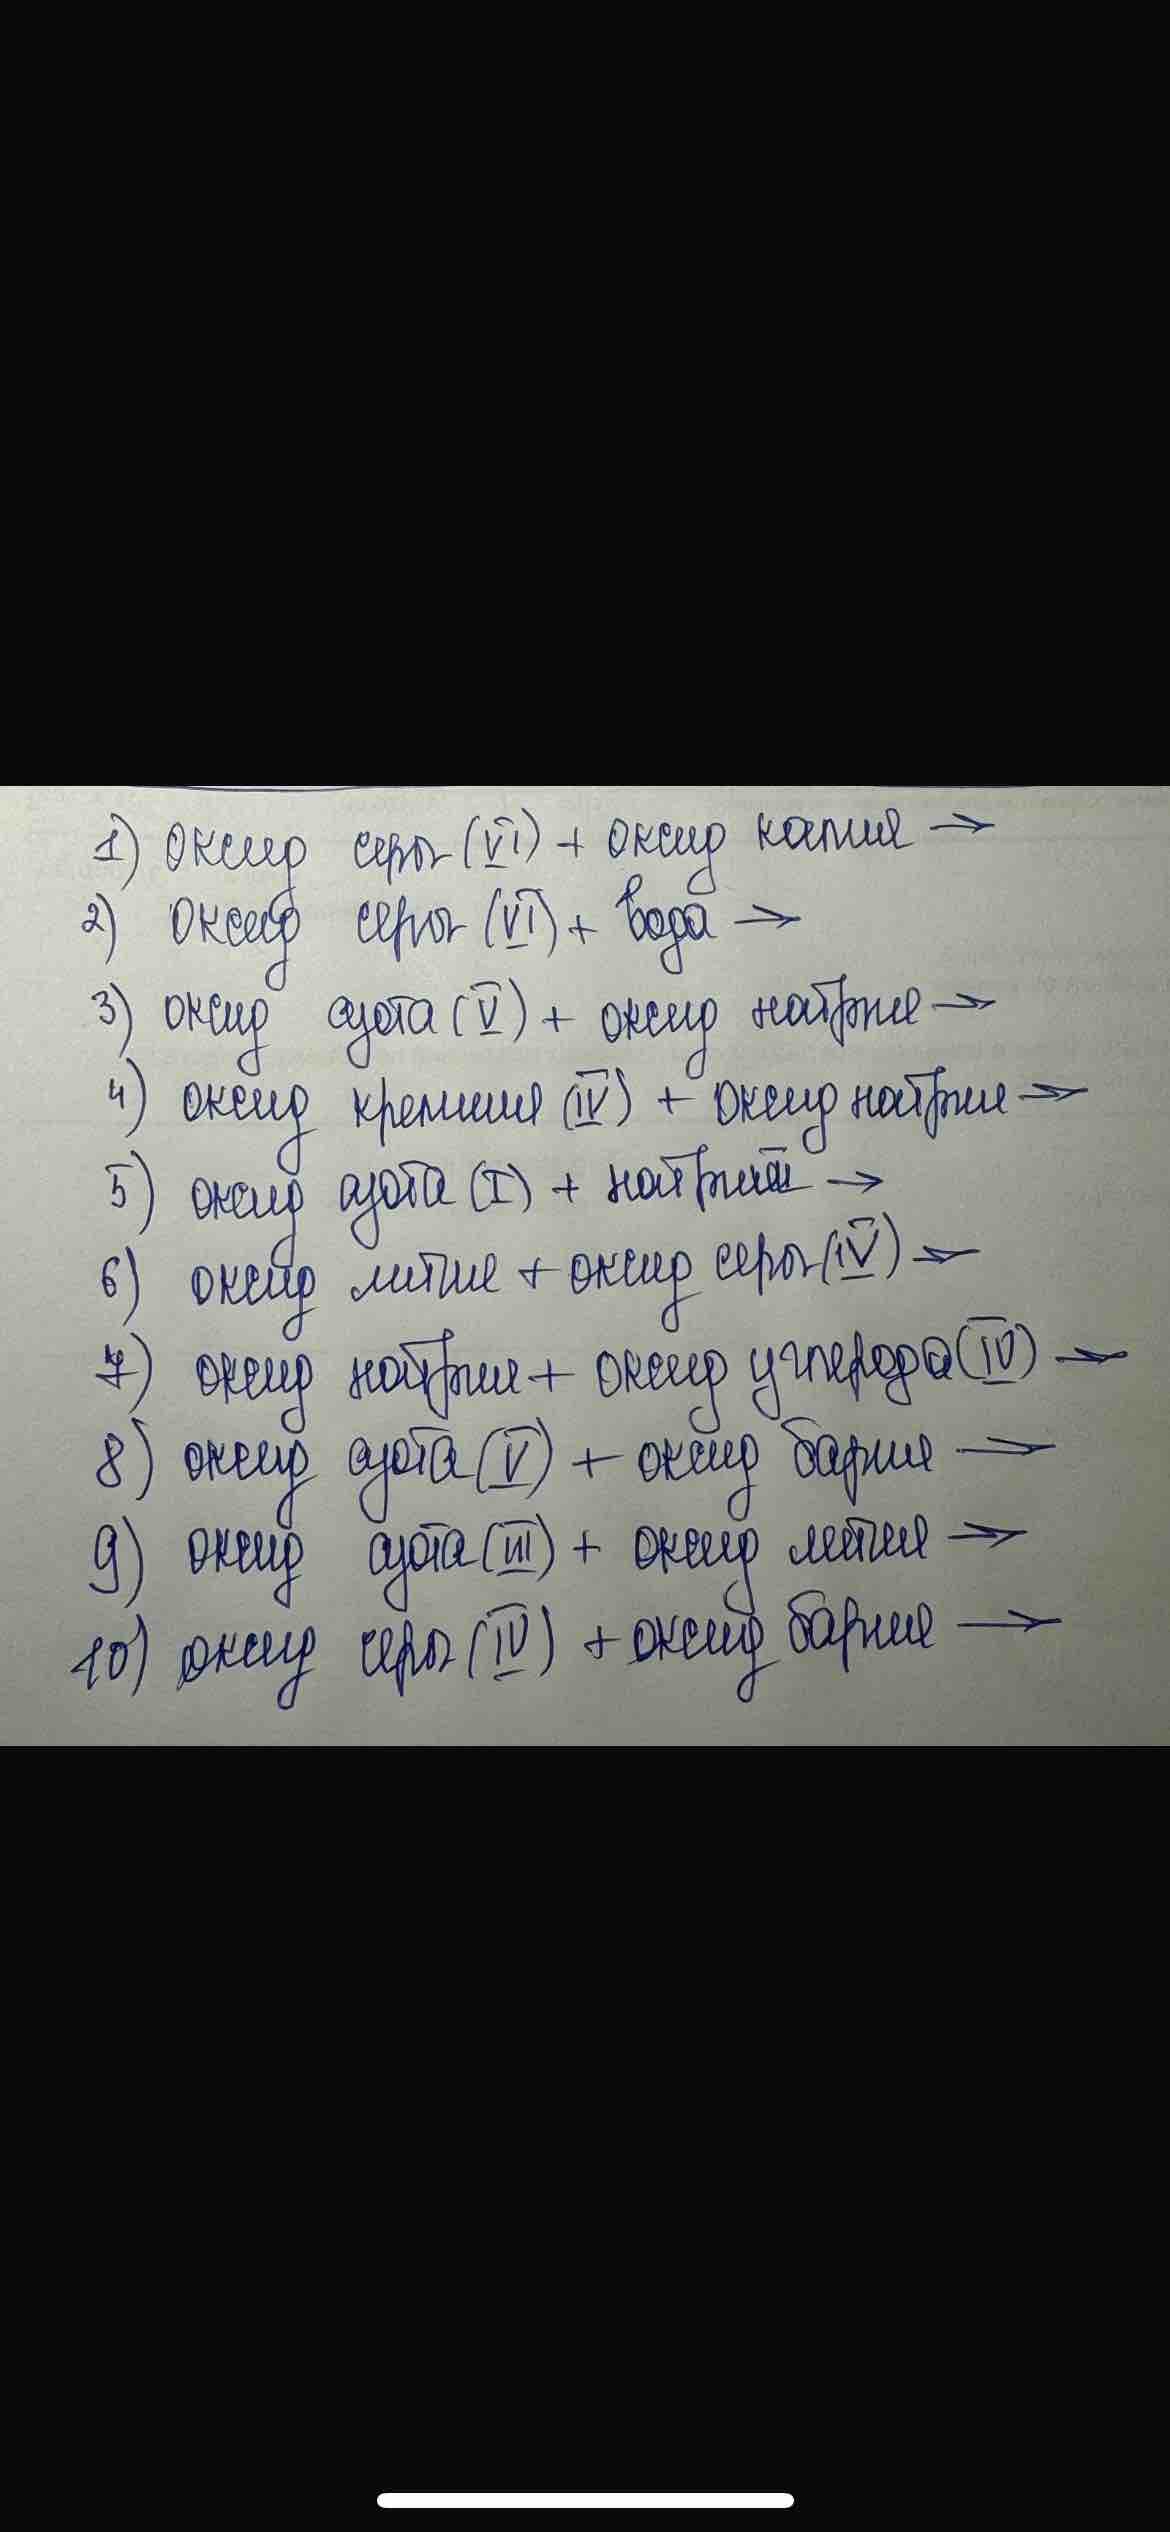 1) оксид серы (VI) + оксид калия →
2) оксид серы (VI) + вода →
3) оксид азота (V) + оксид натрия →
4) оксид кремния (IV) + оксид натрия →
5) оксид азота (I) + натрий →
6) оксид лития + оксид серы (IV) →
7) оксид натрия + оксид углерода (IV) →
8) оксид азота (V) + оксид бария →
9) оксид азота (III) + оксид лития →
10) оксид серы (IV) + оксид бария →